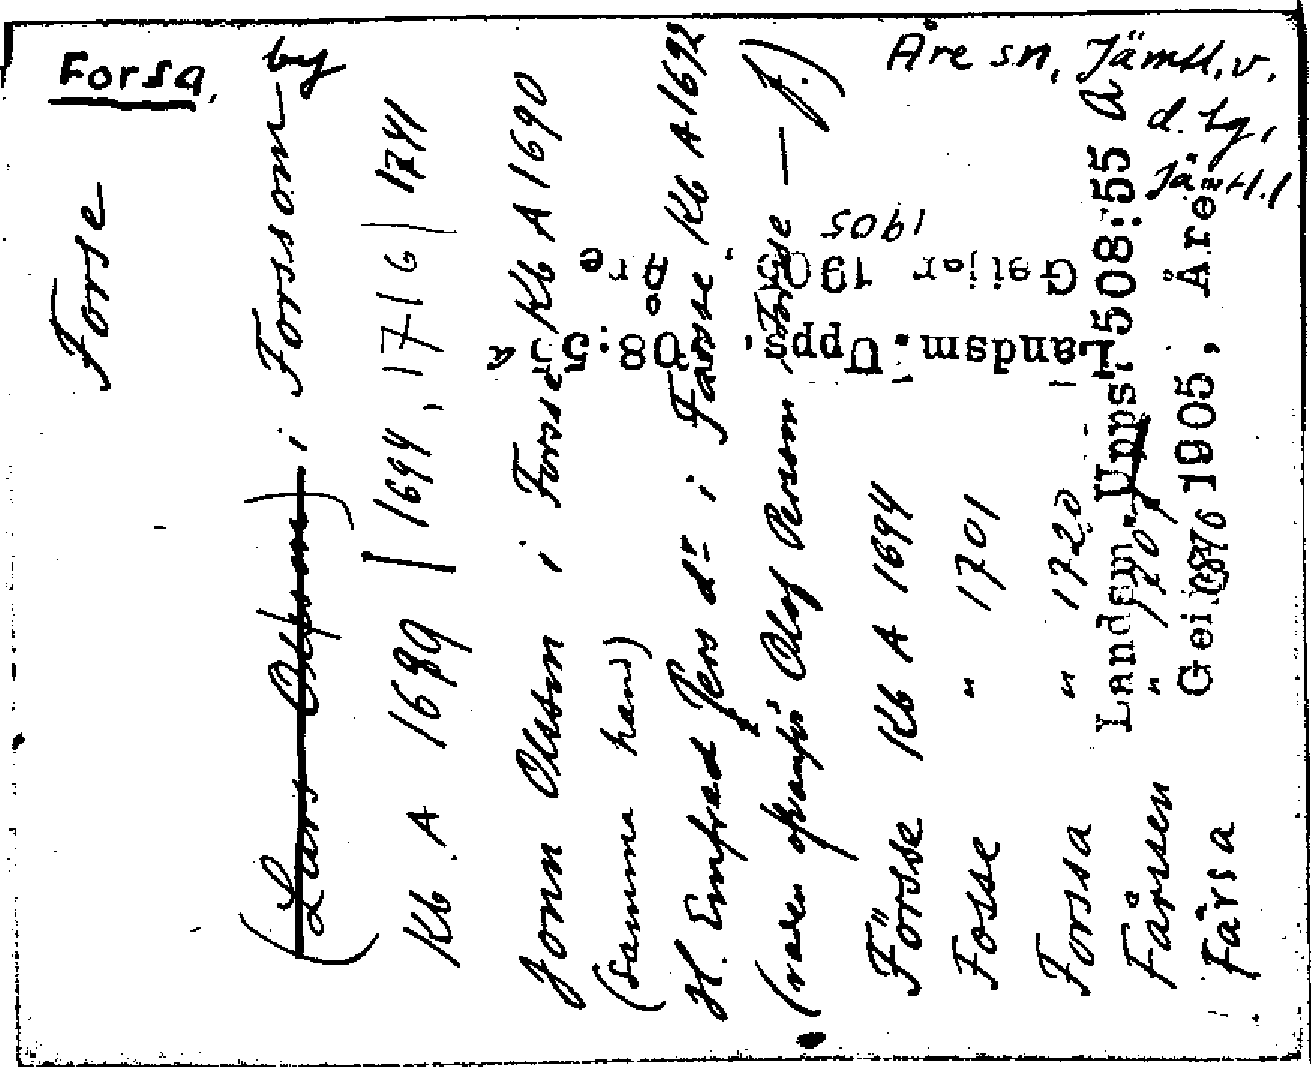 Forsa, by
Åre sn, Jämtl.v.
d. tg,
Jämtl.l
Forse
(Lars Olsson) i Forssom
Kb. A 1689 | 1694, 1716 | 1741
Jonn Olsson i Forsse Kb A 1690
(samma hand)
H. Emfred Pers dr i Farsse Kb A 1692
(raden ofvanför Olof Persson Forsse — f.)
Försse Kb A 1694
Fosse " 1701
Forssa " 1720
Fårssen " 1707
Fårsa
Landsm. Upps. 508:55 a
Geijer 1905, Åre
Landsm. Upps. 508:55 a
Geijer 1905, Åre
1905